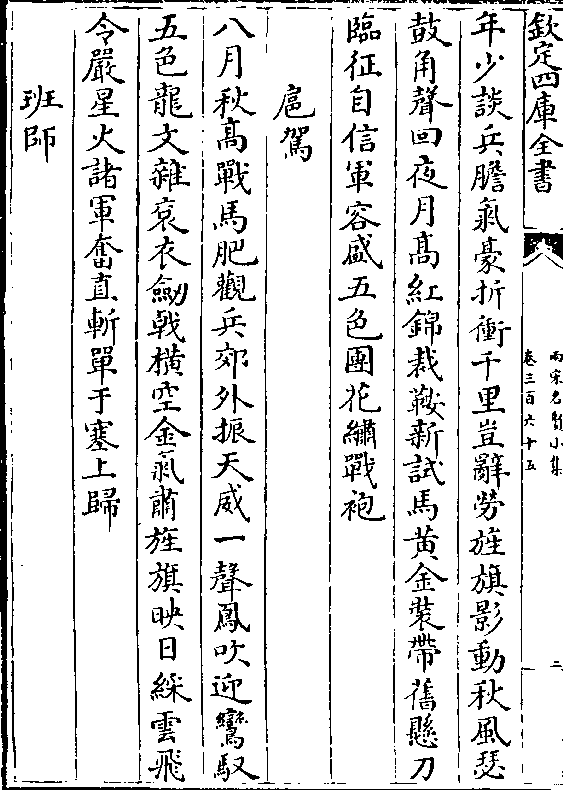 欽定四庫全書
兩宋名賢小集
卷三百六十五
二
年少談兵膽氣豪折衝千里豈辭勞旌旗影動秋風瑟
鼓角聲回夜月高紅錦裁鞍新試馬黃金裝帶舊懸刀
臨征自信軍容盛五色團花繡戰袍
扈駕
八月秋高戰馬肥觀兵郊外振天威一聲鳳吹迎鸞馭
五色龍文雜衮衣劒戟横空金氣肅旌旗映日綵雲飛
令嚴星火諸軍奮直斬單于塞上歸
班師